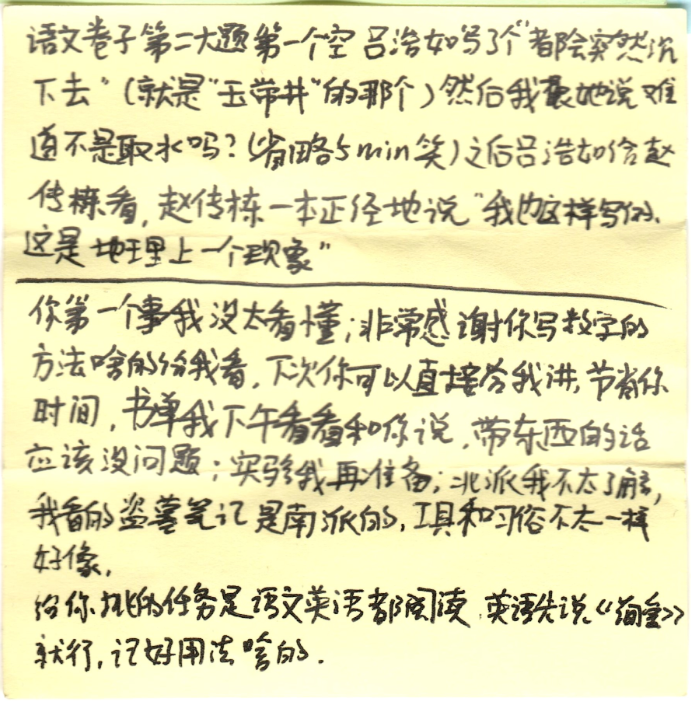 语文卷子第二大题第一个空 吕浩如写了个“都会突然沉
下去”(就是“玉带井”的那个)然后我跟她说 难
道不是取水吗?(省略5min笑)之后吕浩如给赵
传栋看,赵传栋一本正经地说“我也这样写的、
这是地理上一个现象”
你第一个事我没太看懂;非常感谢你写数字的
方法啥的给我看,下次你可以直接答我讲,节省你
时间,书单我下午看看和你说,带东西的话
应该没问题;实验我再准备;北派我不太了解,
我看的盗墓笔记是南派的,工具和习俗不太一样
好像.
给你挑的任务是语文英语都阅读 英语先说《简爱》
就行,记好用法啥的.